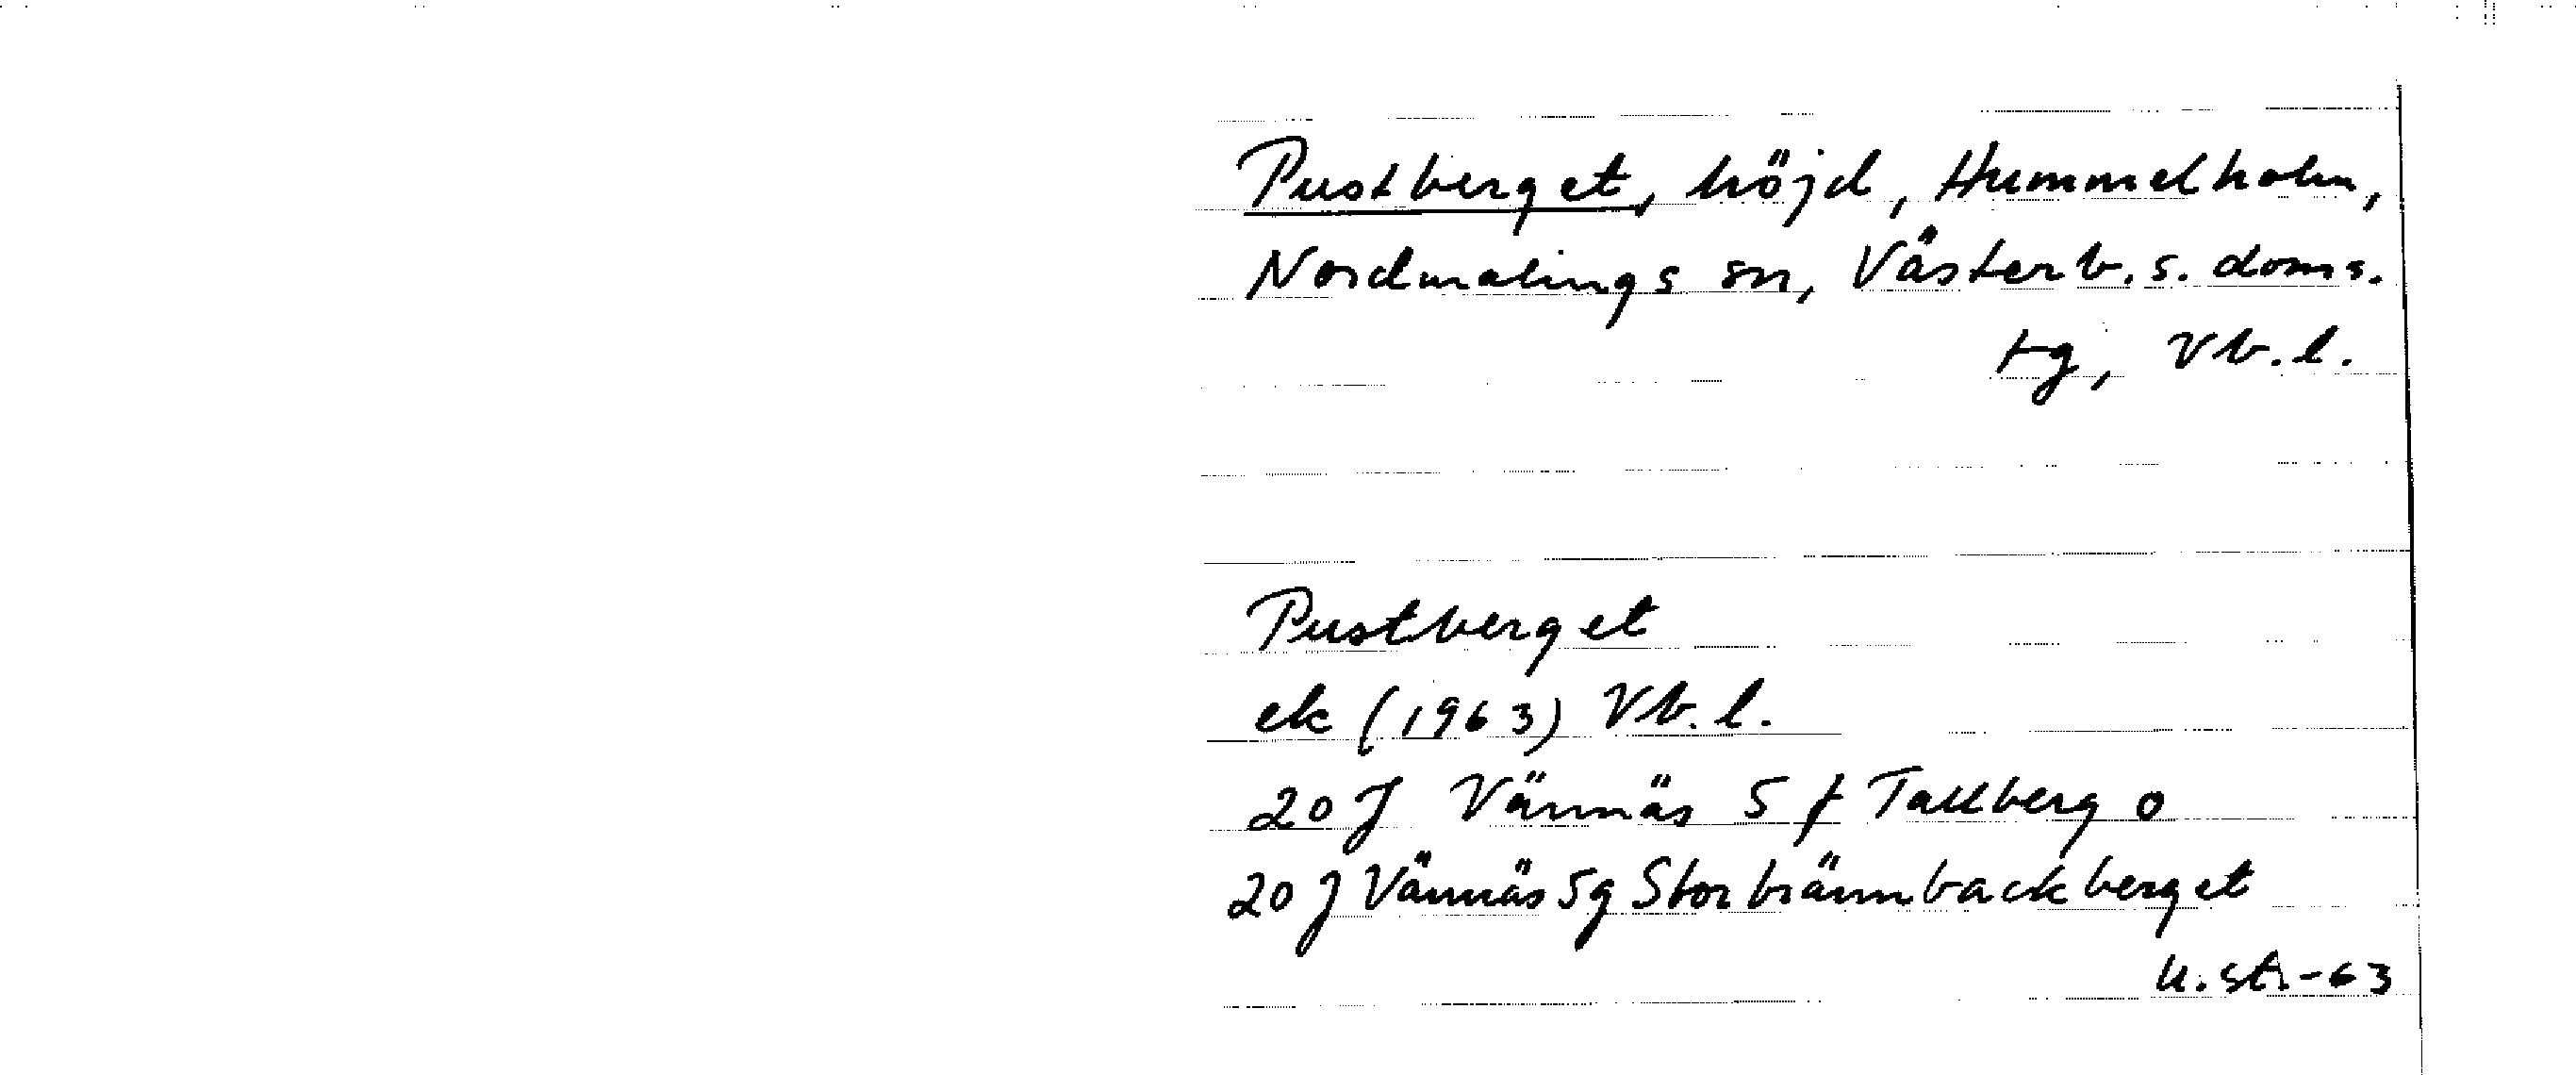 Pustberget, höjd, Hummelholm,
Nordmalings sn, Västerb. s. doms.
tg, Vb.l.
Pustberget
ek (1963) Vb.l.
20 J Vännäs 5 f Tallberg o
20 J Vännäs 5g Storbrännbackberget
U.St.-63